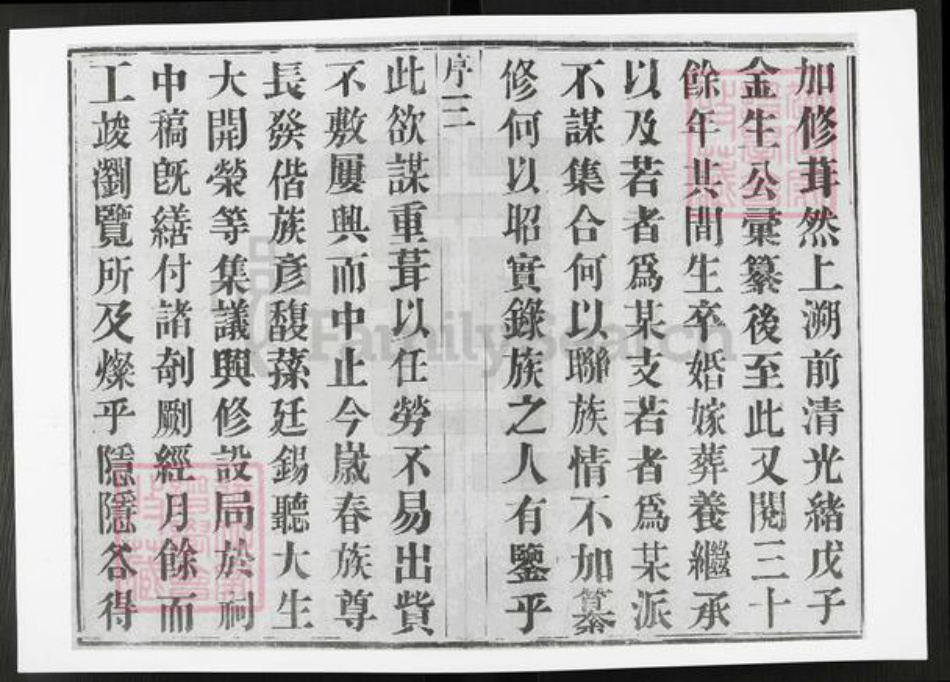 加修葺然上溯前清光緒戊子
金生公彙纂後至此又閱三十
餘年其間生卒婚嫁葬養繼承
以及若者爲某支若者爲某派
不謀集合何以聯族情不加纂
修何以昭實錄族之人有鑒乎
序三
此欲謀重葺以任勞不易出貲
不敷屢興而中止今嵗春族尊
長發偕族彥馥蓀廷錫聽大生
大開榮等集議興修設局於祠
中稿旣繕付諸剞劂經月餘而
工竣瀏覽所及燦乎隱隱各得
FamilySearch